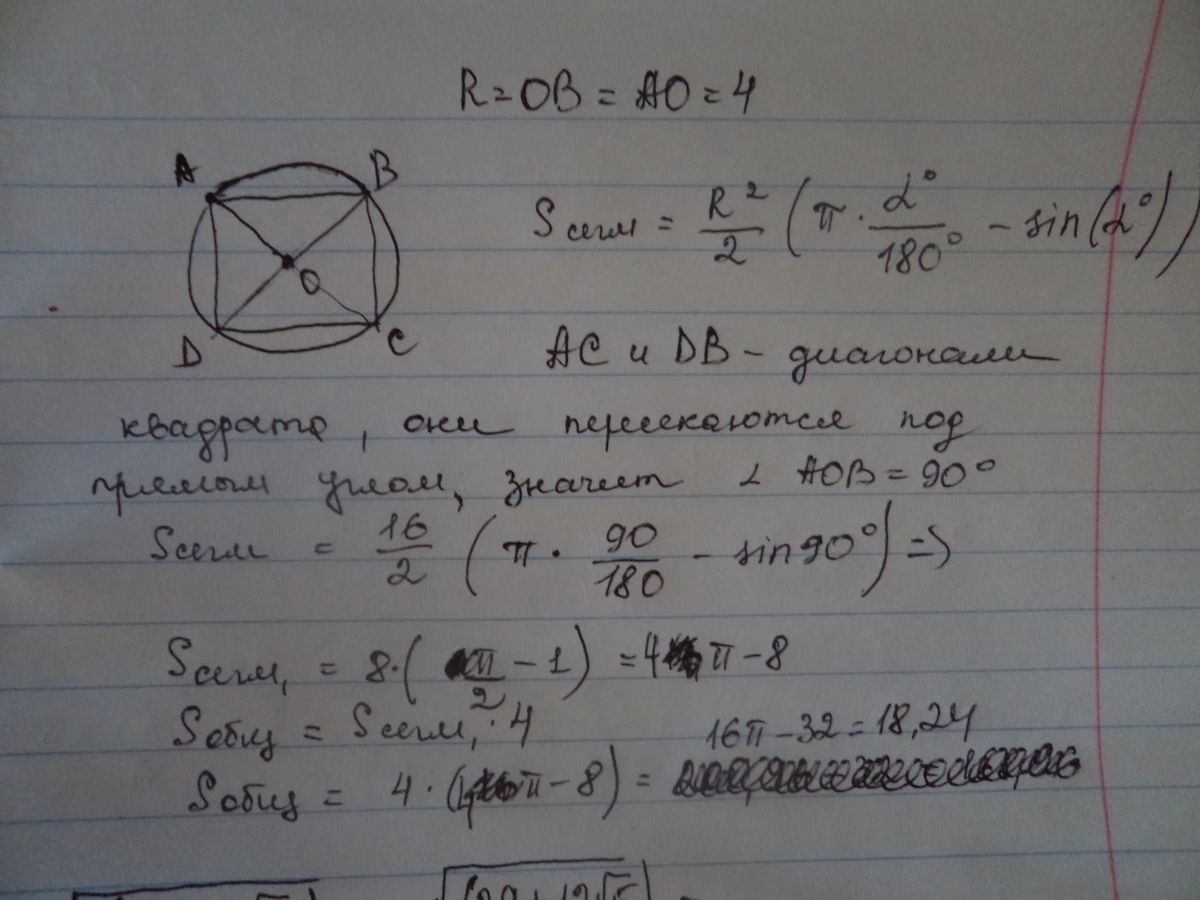 R = OB = AO = 4
A B
O
D C
Sсегм = R²/2 (π · α°/180° - sin(α°))
AC и DB - диагонали
квадрата, они пересекаются под
прямым углом, значит ∠ AOB = 90°
Sсегм = 16/2 (π · 90/180 - sin90°) =>
Sсегм₁ = 8·(π/2 - 1) = 4π - 8
Sобщ = Sсегм₁ · 4
16π - 32 = 18,24
Sобщ = 4·(4π - 8) =